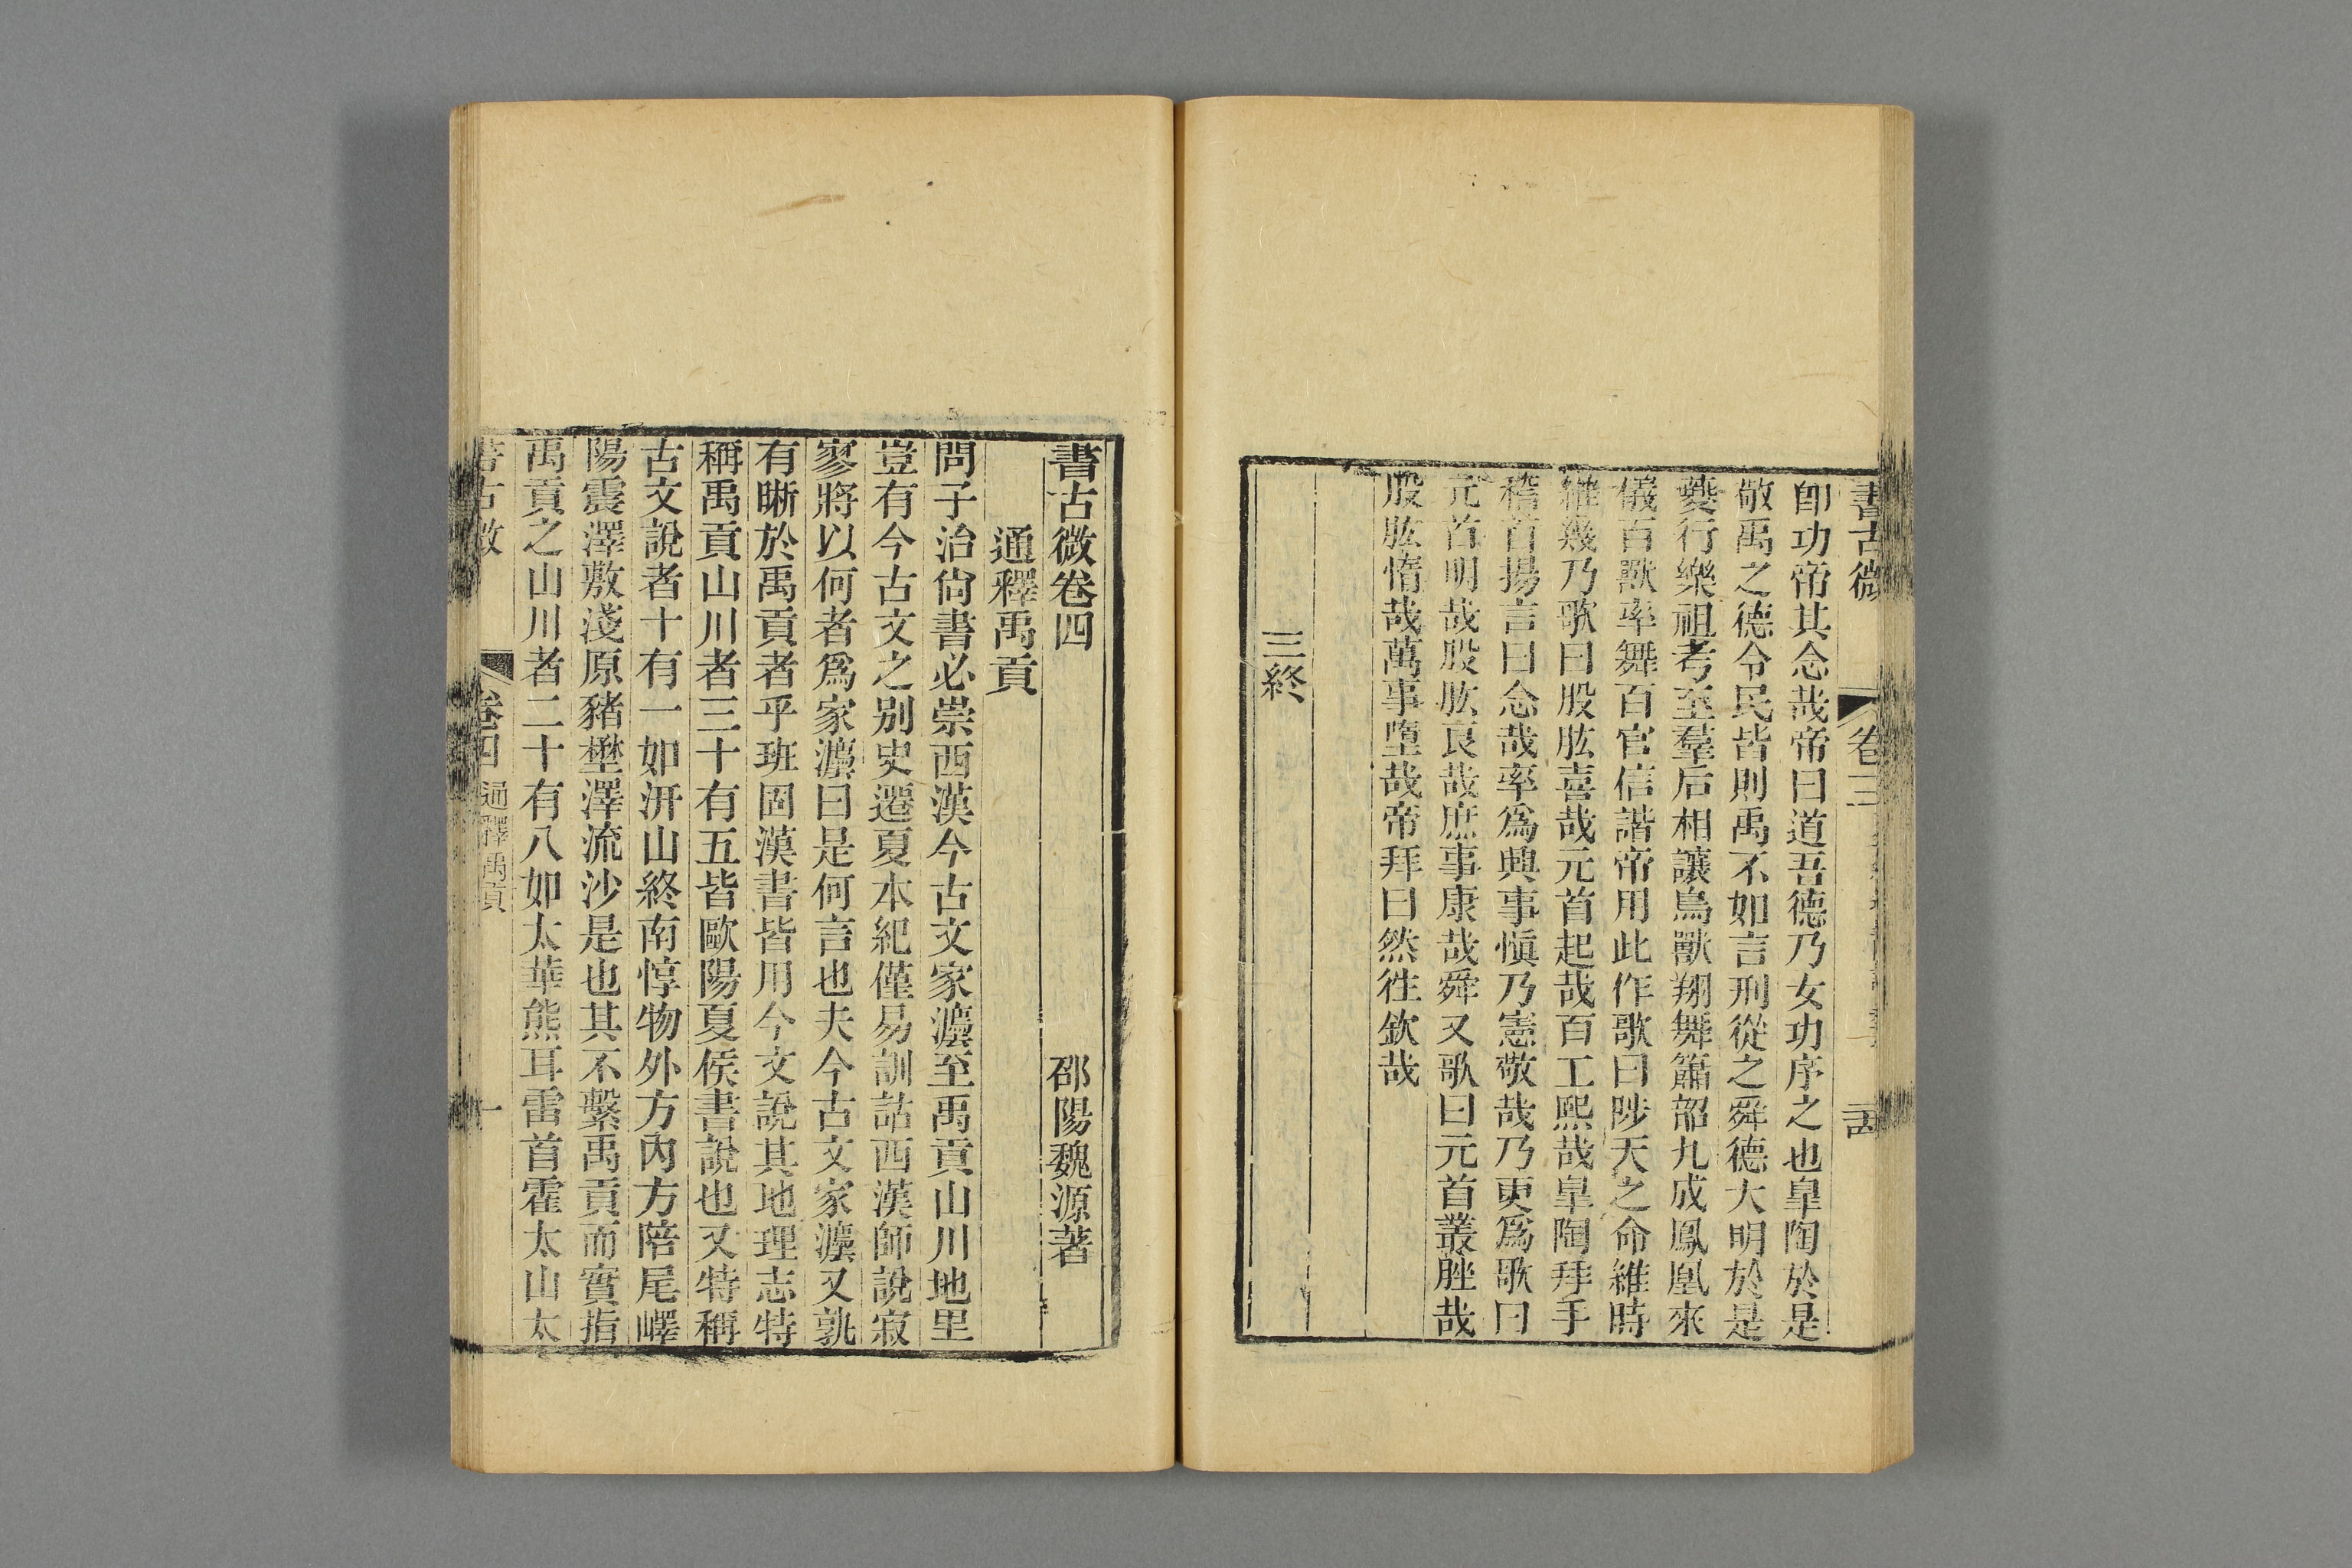 書古微
卷三
卽功帝其念哉帝曰道吾德乃女功序之也皐陶於是
敬禹之德令民皆則禹不如言刑從之舜德大明於是
夔行樂祖考至羣后相讓鳥獸翔舞簫韶九成鳳凰來
儀百獸率舞百官信諧帝用此作歌曰陟天之命維時
維幾乃歌曰股肱喜哉元首起哉百工熙哉皐陶拜手
稽首揚言曰念哉率爲興事愼乃憲敬哉乃更爲歌曰
元首明哉股肱良哉庶事康哉舜又歌曰元首叢脞哉
股肱惰哉萬事墮哉帝拜曰然徃欽哉
三終
書古微卷四
邵陽魏源著
通釋禹貢
問子治尙書必崇西漢今古文家灋至禹貢山川地里
豈有今古文之别史遷夏本紀僅易訓詁西漢師說寂
寥將以何者爲家灋曰是何言也夫今古文家灋又孰
有晰於禹貢者乎班固漢書皆用今文說其地理志特
稱禹貢山川者三十有五皆歐陽夏侯書說也又特稱
古文說者十有一如汧山終南惇物外方內方陪尾嶧
陽震澤敷淺原豬壄澤流沙是也其不繫禹貢而實指
禹貢之山川者二十有八如太華熊耳雷首霍太山太
書古微
卷四
通釋禹貢
一